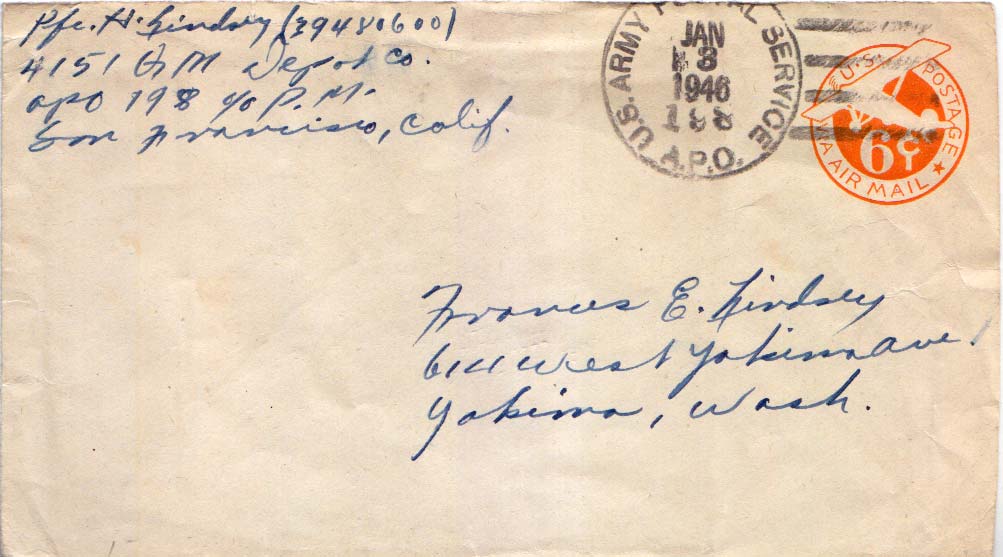 Pfc. H. Lindsey (39480600)
4151 QM Depot Co.
APO 198 c/o P.M.
San Francisco, Calif.
U.S. ARMY POSTAL SERVICE
JAN
8
1946
198
A.P.O.
U.S. POSTAGE
6¢
VIA AIR MAIL
Frances E. Lindsey
614 West Yakima Ave.
Yakima, Wash.